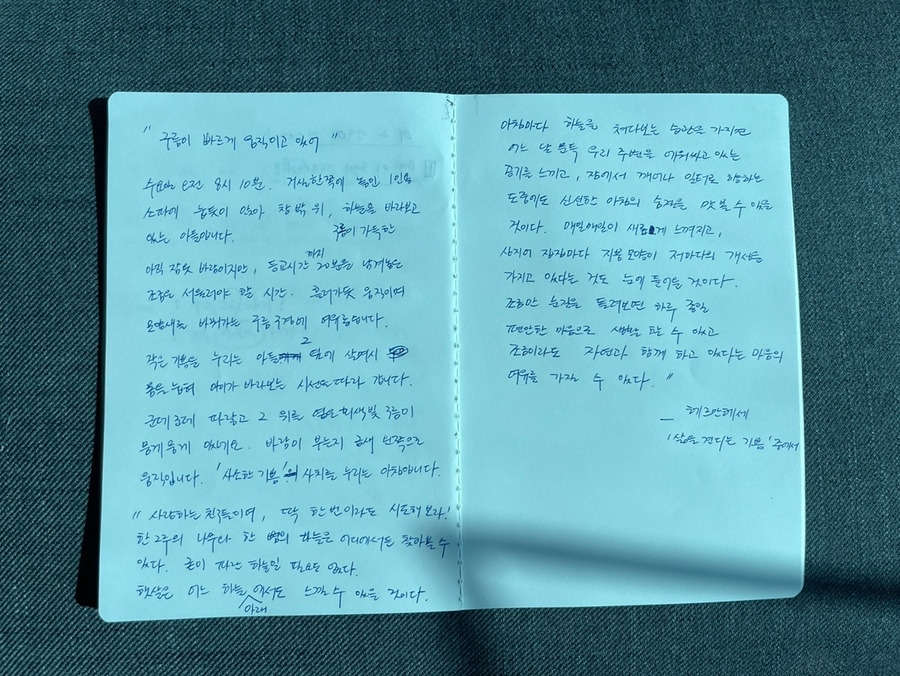 " 구름이 빠르게 움직이고 있어 "
수요일 오전 8시 10분. 거실 한쪽에 놓인 1인용
소파에 눕듯이 앉아 창 밖 위, 하늘을 바라보고
있는 아들입니다. 구름이 가득한
아직 잠옷 바람이지만, 등교시간까지 20분을 남겨놓은
조금은 서둘러야 할 시간. 흘러가듯 움직이며
모양새를 바꿔가는 구름 구경하기에 여유롭습니다.
작은 기쁨을 누리는 아들 그 옆에 살며시
몸을 눕혀 아이가 바라보는 시선을 따라 갑니다.
군데군데 파랗고 그 위를 옅은 회색빛 구름이
뭉게뭉게 있네요. 바람이 부는지 금새 왼쪽으로
움직입니다. '사소한 기쁨' 사치를 누리는 아침입니다.
" 사랑하는 친구들이여, 딱 한 번이라도 시도해 보라!
한 그루의 나무와 한 뼘의 하늘은 어디에서든 찾아볼 수
있다. 굳이 파란 하늘일 필요도 없다.
햇살은 어느 하늘 아래에서도 느낄 수 있을 것이다.
아침마다 하늘을 쳐다보는 습관을 가지면
어느 날 문득 우리 주변을 에워싸고 있는
공기를 느끼고, 잠에서 깨어나 일터로 향하는
도중에도 신선한 아침의 숨결을 맛 볼 수 있을
것이다. 매일매일이 새롭게 느껴지고,
심지어 집집마다 지붕 모양이 저마다의 개성을
가지고 있다는 것도 눈에 들어올 것이다.
조금만 눈길을 돌려보면 하루 종일
편안한 마음으로 생활 할 수 있고
조금이라도 자연과 함께 하고 있다는 마음의
여유를 가질 수 있다. "
_ 헤르만헤세
'삶을 견디는 기쁨' 중에서